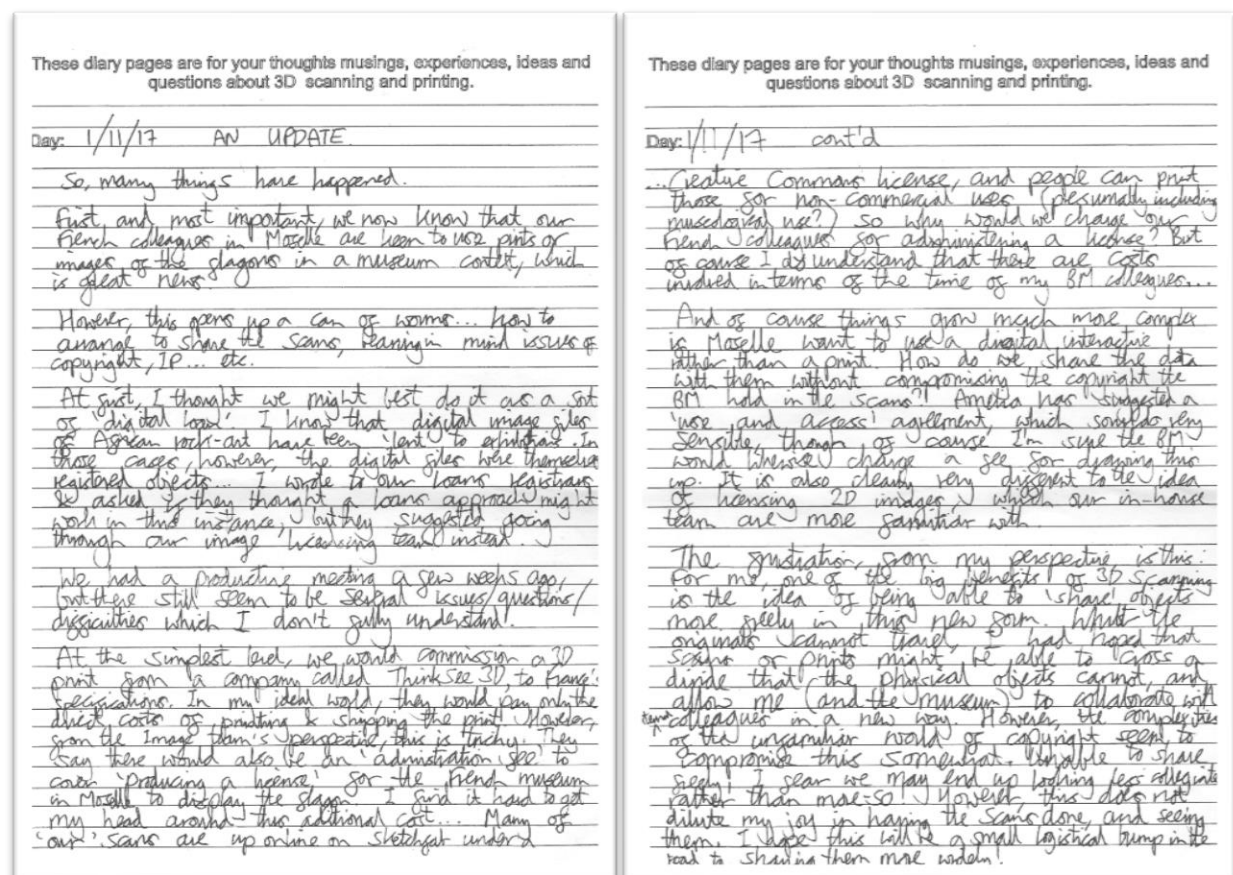 These diary pages are for your thoughts musings, experiences, ideas and
questions about 3D scanning and printing.
Day: 1/11/17 AN UPDATE
So, many things have happened.
First, and most important, we now know that our
French colleagues in Moselle are keen to use prints or
images of the flagons in a museum context, which
is great news.
However, this opens up a can of worms... how to
arrange to share the scans, bearing in mind issues of
copyright, IP... etc.
At first, I thought we might best do it as a sort
of 'digital loan'. I know that digital image files
of African rock-art have been 'lent' to exhibitions. In
those cases, however, the digital files were themselves
registered objects... I wrote to our loans registrars
& asked if they thought a loans approach might
work in this instance, but they suggested going
through our image licensing team instead.
We had a productive meeting a few weeks ago,
but there still seem to be several issues/questions/
difficulties which I don't fully understand!
At the simplest level, we would commission a 3D
print from a company called ThinkSee3D, to France's
specifications. In my ideal world, they would pay only the
direct costs of printing & shipping the print. However,
from the Image team's perspective, this is tricky. They
say there would also be an 'administration fee' to
cover 'producing a license' for the French museum
in Moselle to display the flagon. I find it hard to get
my head around this additional cost... Many of
'our' scans are up online on Sketchfab under a
These diary pages are for your thoughts musings, experiences, ideas and
questions about 3D scanning and printing.
Day: 1/11/17 cont'd
...Creative Commons license, and people can print
those for non-commercial uses (presumably including
museological use?) So why would we charge our
French colleagues for administering a license? But
of course I do understand that there are costs
involved in terms of the time of my BM colleagues...
And of course things grow much more complex
if Moselle want to use a digital interactive
rather than a print. How do we share the data
with them without compromising the copyright the
BM hold in the scans?! Amelia has suggested a
'use and access' agreement, which sounds very
sensible, though of course I'm sure the BM
would likewise charge a fee for drawing this
up. It is also clearly very different to the idea
of licensing 2D images, which our in-house
team are more familiar with.
The frustration, from my perspective, is this:
For me, one of the big benefits of 3D scanning
is the idea of being able to 'share' objects
more freely in this new form. Whilst the
originals cannot travel, I had hoped that
scans or prints might be able to cross a
divide that the physical objects cannot, and
allow me (and the museum) to collaborate with
colleagues in a new way. However, the complexities
of the unfamiliar world of copyright seem to
compromise this somewhat. Unable to share
freely, I fear we may end up looking less collegiate
rather than more-so! However, this does not
dilute my joy in having the scans done, and seeing
them. I hope this will be a small logistical bump in the
road to sharing them more widely!